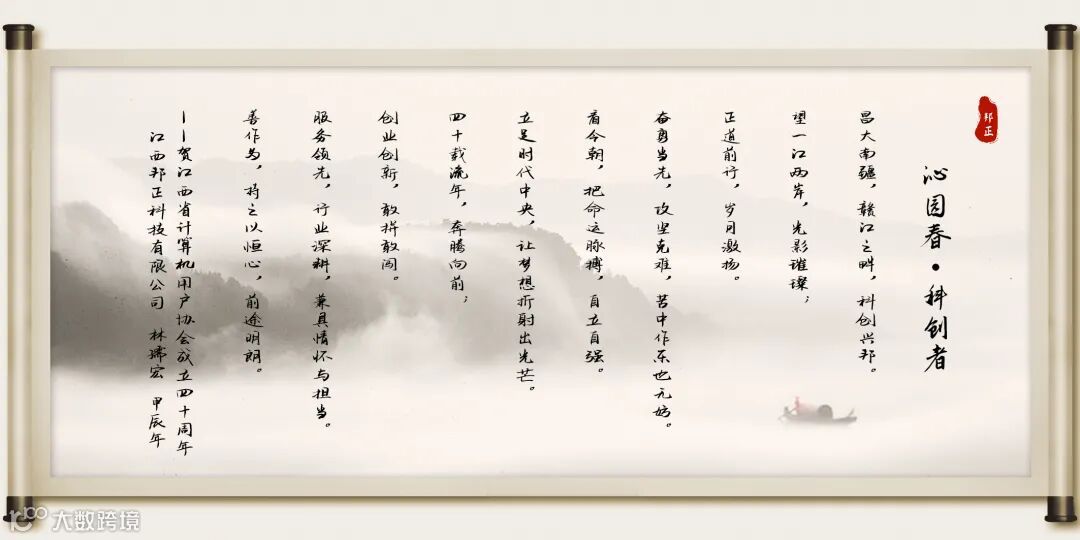 邦正
沁园春·科创者
昌大南疆，赣江之畔，科创兴邦。
望一江两岸，光影璀璨；
正道前行，岁月激扬。
奋勇当先，攻坚克难，苦中作乐也无妨。
看今朝，把命运脉搏，自立自强。
立足时代中央，让梦想折射出光芒。
四十载流年，奔腾向前；
创业创新，敢拼敢闯。
服务领先，行业深耕，兼具情怀与担当。
善作为，持之以恒心，前途明朗。
——贺江西省计算机用户协会成立四十周年
江西邦正科技有限公司 林瑞宏 甲辰年
大数跨境